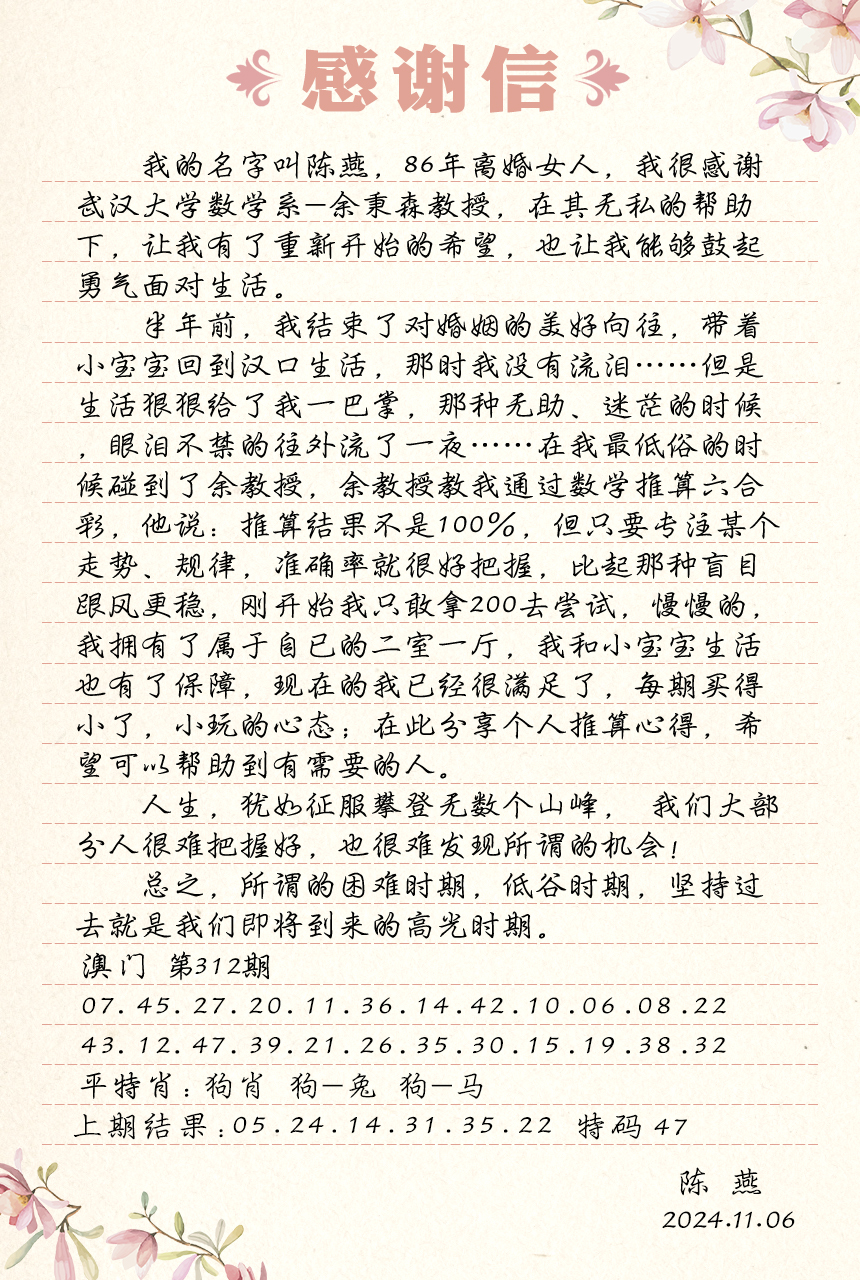 感谢信
我的名字叫陈燕，86年离婚女人，我很感谢
武汉大学数学系-余秉森教授，在其无私的帮助
下，让我有了重新开始的希望，也让我能够鼓起
勇气面对生活。
半年前，我结束了对婚姻的美好向往，带着
小宝宝回到汉口生活，那时我没有流泪……但是
生活狠狠给了我一巴掌，那种无助、迷茫的时候
，眼泪不禁的往外流了一夜……在我最低俗的时
候碰到了余教授，余教授教我通过数学推算六合
彩，他说：推算结果不是100%，但只要专注某个
走势、规律，准确率就很好把握，比起那种盲目
跟风更稳，刚开始我只敢拿200去尝试，慢慢的，
我拥有了属于自己的二室一厅，我和小宝宝生活
也有了保障，现在的我已经很满足了，每期买得
小了，小玩的心态；在此分享个人推算心得，希
望可以帮助到有需要的人。
人生，犹如征服攀登无数个山峰， 我们大部
分人很难把握好，也很难发现所谓的机会！
总之，所谓的困难时期，低谷时期，坚持过
去就是我们即将到来的高光时期。
澳门 第312期
07.45.27.20.11.36.14.42.10.06.08.22
43.12.47.39.21.26.35.30.15.19.38.32
平特肖：狗肖 狗-兔 狗-马
上期结果：05.24.14.31.35.22 特码 47
陈 燕
2024.11.06